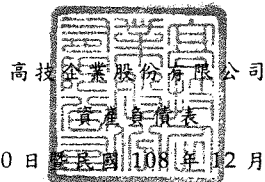 高技企業股份有限公司
資產負債表
0日暨民國108年12月